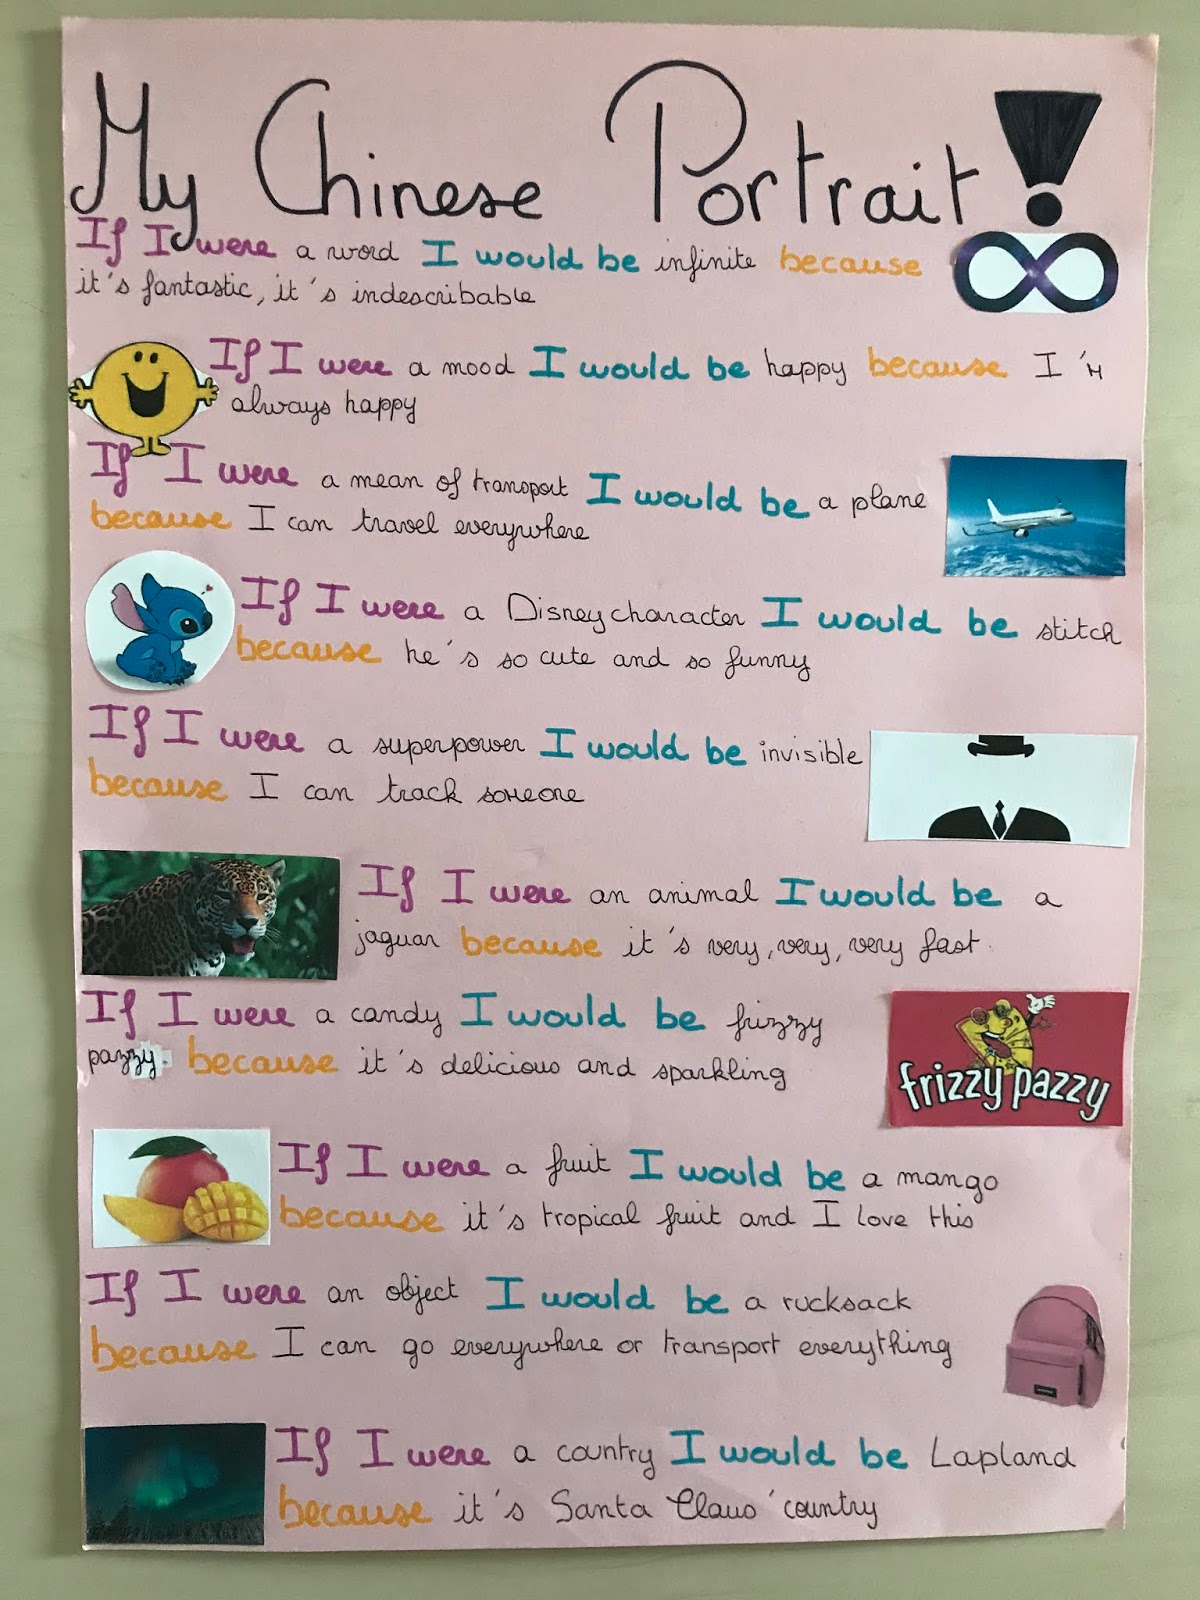 My Chinese Portrait!
If I were a word I would be infinite because
it's fantastic, it's indescribable
If I were a mood I would be happy because I'm
always happy
If I were a mean of transport I would be a plane
because I can travel everywhere
If I were a Disney character I would be stitch
because he's so cute and so funny
If I were a superpower I would be invisible
because I can track someone
If I were an animal I would be a
jaguar because it's very, very, very fast.
If I were a candy I would be frizzy
pazzy. because it's delicious and sparkling
frizzy pazzy
If I were a fruit I would be a mango
because it's tropical fruit and I love this
If I were an object I would be a rucksack
because I can go everywhere or transport everything
If I were a country I would be Lapland
because it's Santa Claus' country